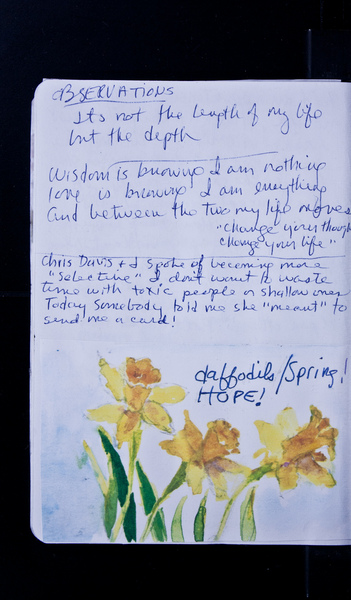 OBSERVATIONS
It's not the length of my life
but the depth
Wisdom is knowing I am nothing
love is knowing I am everything
and between the two my life moves
"change your though
change your life"
Chris Davis + I spoke of becoming more
"selective" I don't want to waste
time with toxic people or shallow ones
Today somebody told me she "meant" to
send me a card!
daffodils/Spring!
HOPE!